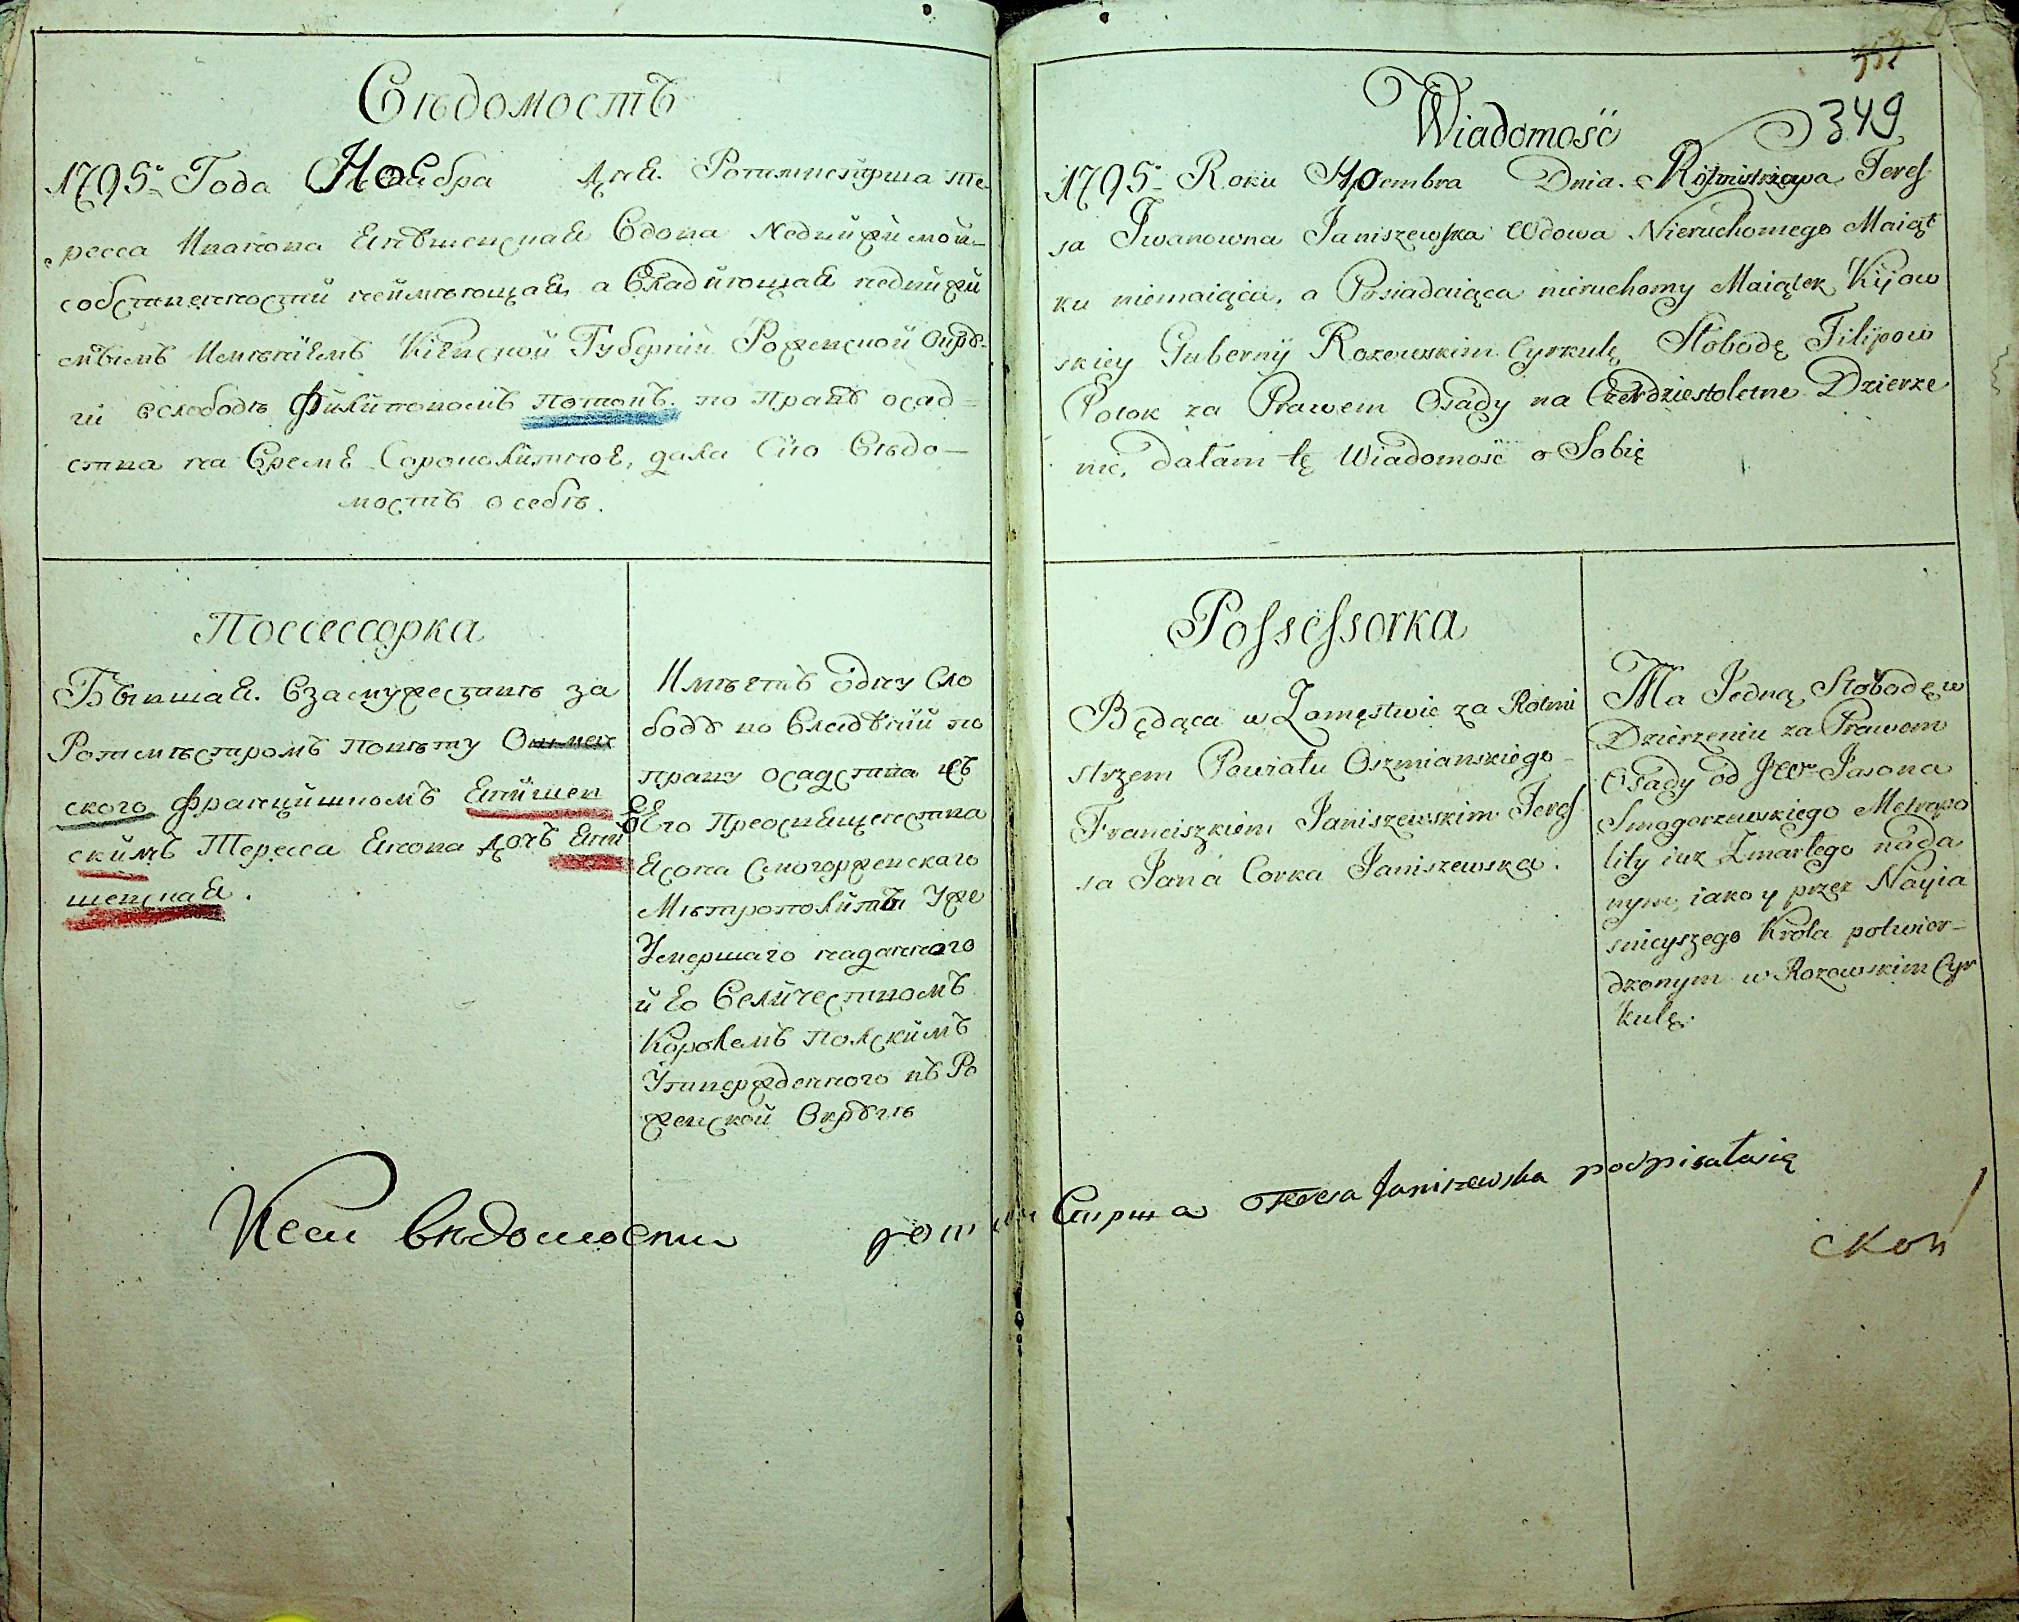 Вѣдомость
1795го Года Ноября дня. Ротмистрша Те-
ресса Иванова Янѣшевская Вдова недвижимой
собственности неймѣющая, а Владиющая недвижи
мымъ Имѣнїемъ Кїевской Губернїи Рожевской Округ-
ги вслободѣ Филиповомъ Потокъ. по Праву осад-
ства на Время Сороколѣтное, дала Сїю Вѣдо-
мость о себѣ.
Поссессорка
Бывшая. Взамужествѣ за
Ротмѣстромъ Повѣту Ошмен
ского Францишкомъ Янишев
скимъ Тересса Янова дочъ Яни
шевская.
Имѣетъ одну Сло
боду во Владѣнїи по
праву осадства
Его Преосвященства
Ясона Смогоржевскаго
Мѣтрополита Уже
Умершаго наданного
и Его Величествомъ
Королемъ Полскимъ
Утвержденного въ Ро
жевской Округѣ
Ксей вѣдомости ротми
349
Wiadomość
1795o Roku Noembra Dnia. Rotmistrzowa Teres
sa Iwanowna Janiszewska Wdowa Nieruchomego Maiąt
ku niemaiąca, a Posiadaiąca nieruchomy Maiątek Kijow
skiey Gubernÿ Rozewskim Cyrkulę Słobodę Filipow
Potok za Prawem Osady na Czterdziestoletne Dzierze
nie, dałam tę Wiadomość o Sobię
Possessorka
Będąca w Zamęstwie za Rotmi
strzem Powiatu Oszmianskiego
Franciszkiem Janiszewskim Teres
sa Jana Corka Janiszewska.
Ma Jedną Słobodę w
Dzierzeniu za Prawem
Osady od JW Jasona
Smogorzewskiego Metropo
lity iuz Zmarłego nada
nym, iako y przez Nayia
snieyszego Króla potwier-
dzonym w Rozewskim Cyr
kulę.
Стрша Teresa Janiszewska podpisałasię